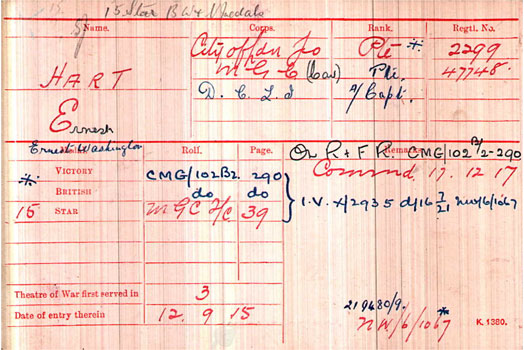 15 Star B W & V Medals
Name. Corps. Rank. Regtl. No.
City of Lon Yeo Pte * 2299
HART M G C (Cav) Pte. 47748.
D. C. L. I A/Capt.
Ernest
Ernest Washington
Roll. Page. Remarks
On R + F R. CMG/102 B/2-290
* VICTORY CMG/102B2. 290 Commd 17. 12 17
BRITISH do do
15 STAR M G C H/C 39 I.V. X/2935 NW/6/1067
Theatre of War first served in 3
Date of entry therein 12. 9. 15
219480/9.
NW/6/1067 *
K. 1380.